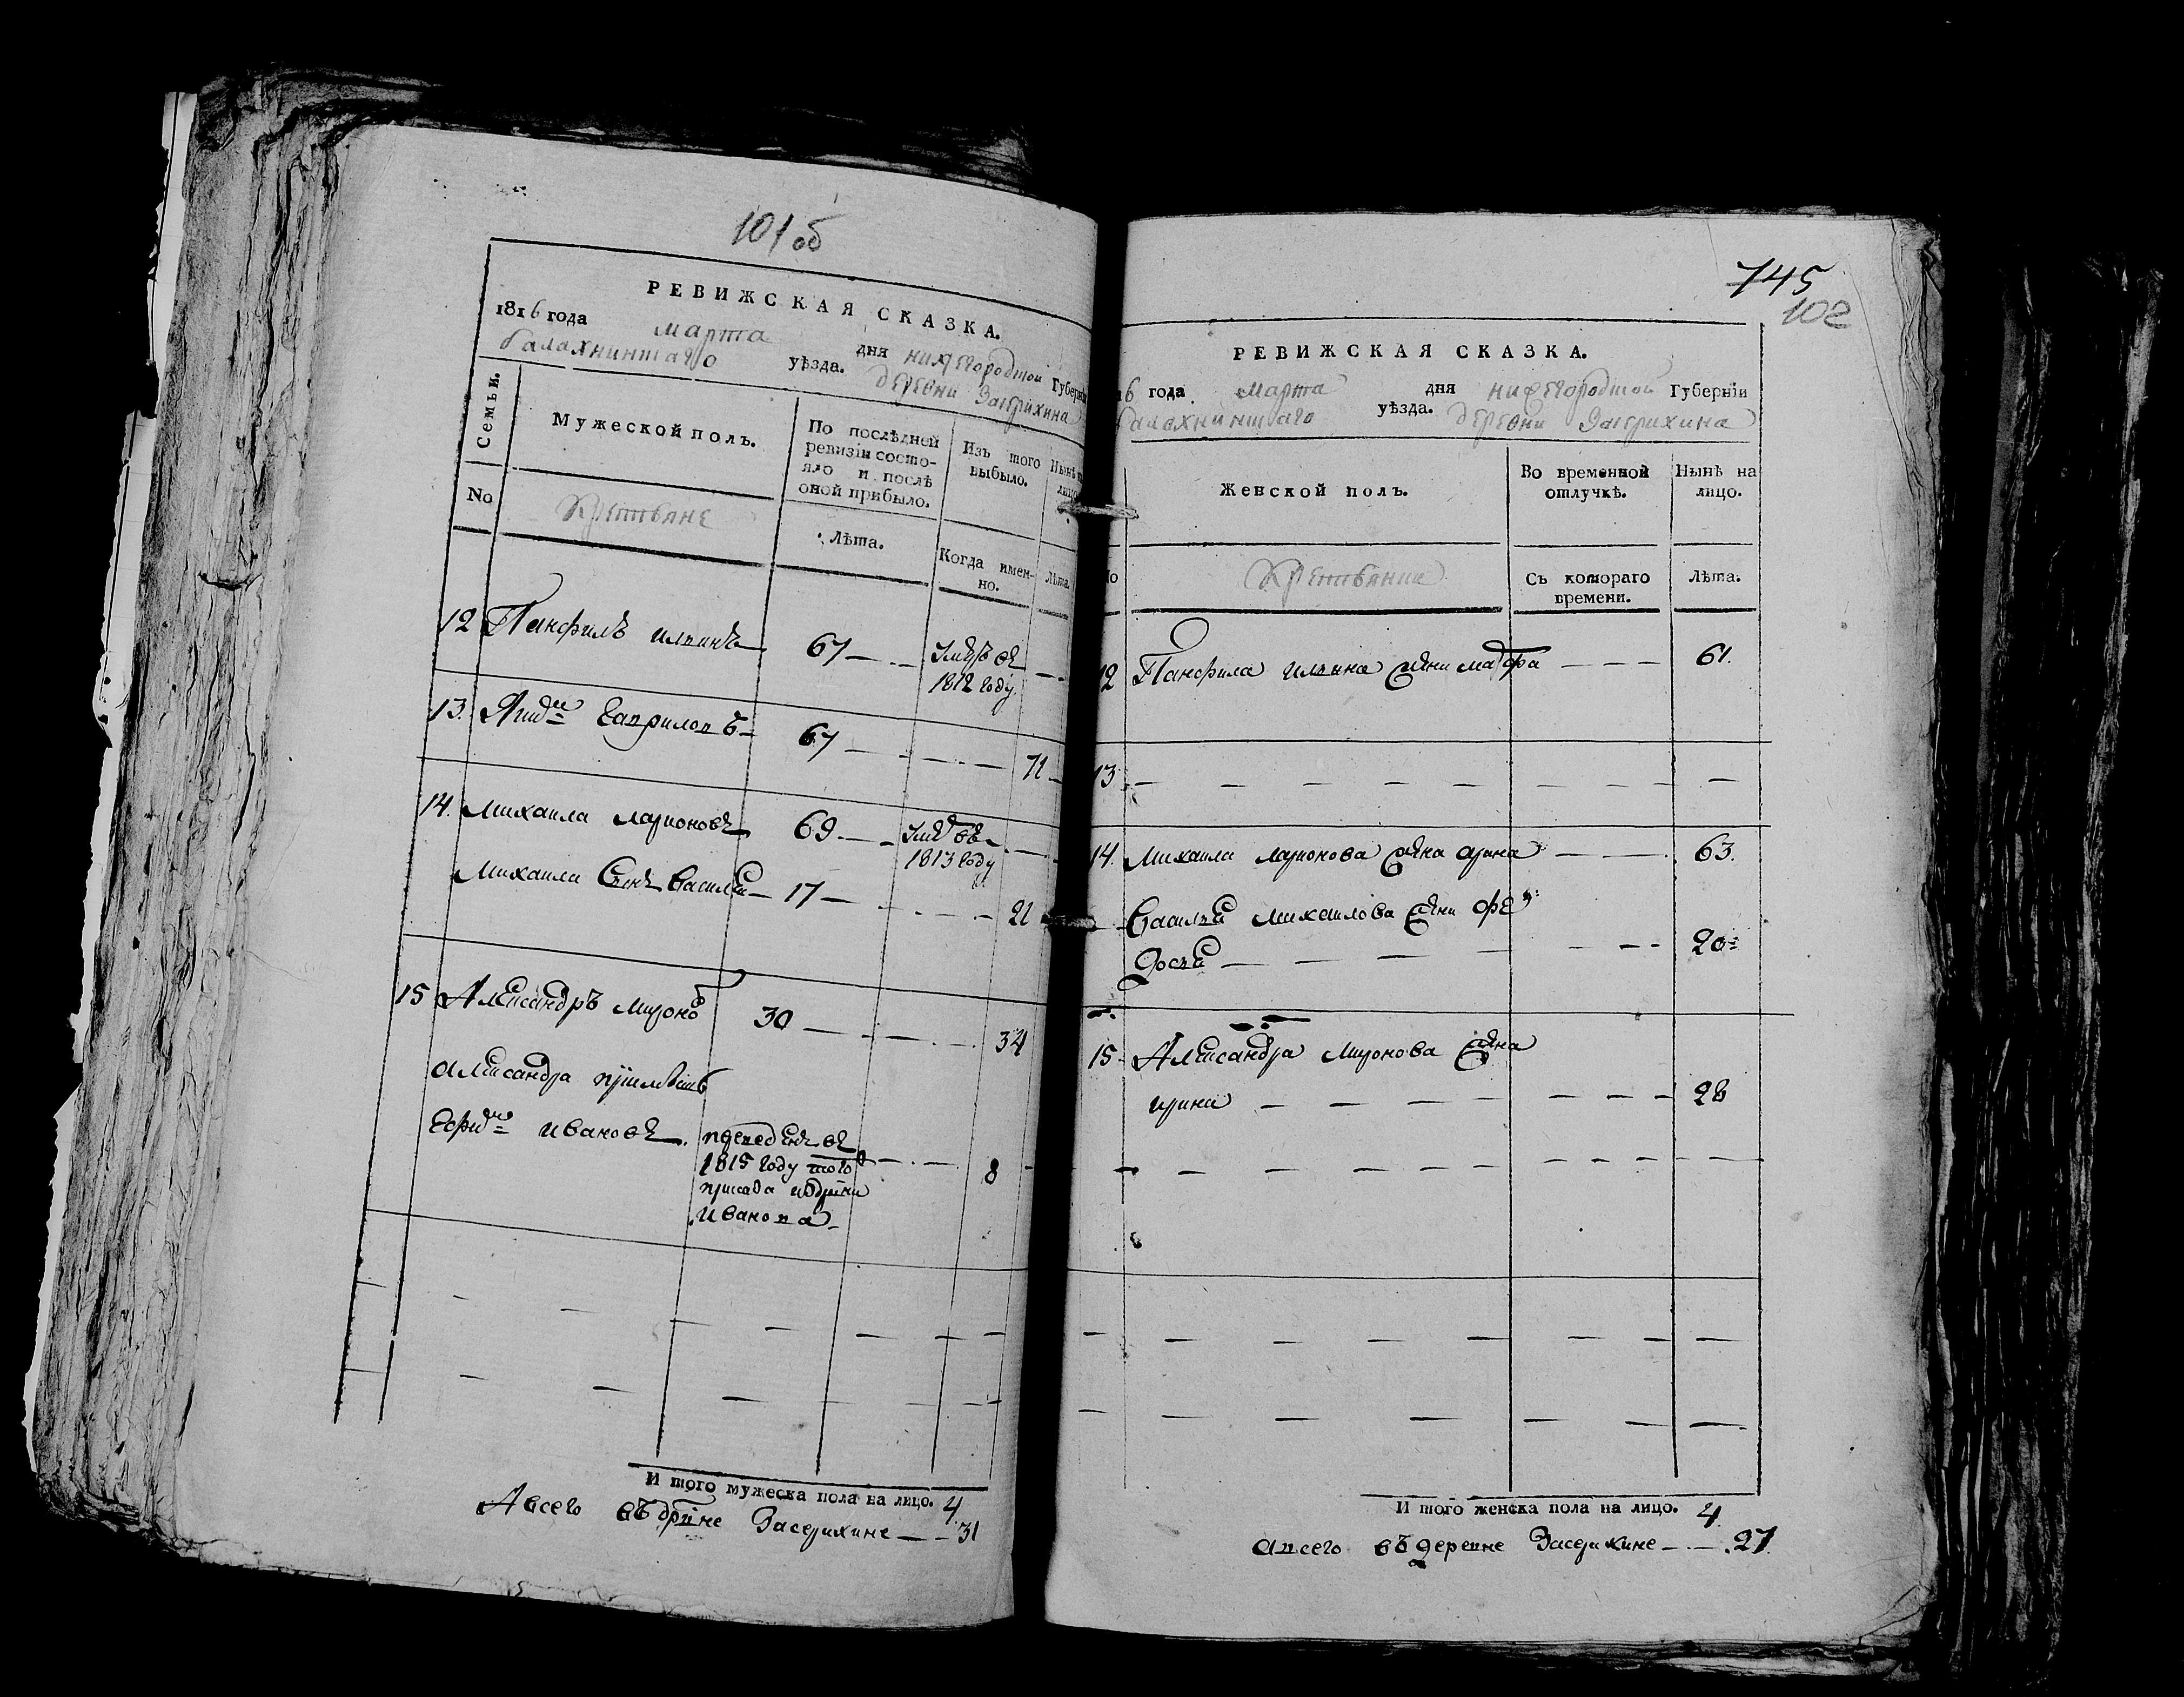 101 об
РЕВИЖСКАЯ СКАЗКА.
1816 года марта дня нижегородской Губерніи
балахнинскаго уѣзда. деревни Засерихина
Семьи.
Мужеской полъ.
По послѣдней ревизіи состояло и послѣ оной прибыло.
Изъ того выбыло.
Нынѣ на лицо.
No
Крестьяне
Лѣта.
Когда именно.
Лѣта.
12 Панфилъ ильинъ 67 умръ въ 1812 году
13. гаврилопъ 67 71
14. михаила ларионовъ 69 умръ въ 1813 году
михаила сынъ василей 17 21
15 Александръ миронов 30 34
александра приимышъ
ивановъ. переведенъ въ 8
1815 году того
Иванопа
И того мужеска пола на лицо. 4
А всего въ дрпне Засерихине 31
745
102
РЕВИЖСКАЯ СКАЗКА.
6 года марта дня нижегородской Губерніи
балахнинскаго уѣзда. деревни Засерихина
Женской полъ.
Во временной отлучкѣ.
Нынѣ на лицо.
No
Крестьянки
Съ котораго времени.
Лѣта.
12 Панфила ильина жена марфа 61.
13
14. Михаила ларионова жена арина 63.
Василья михаилова жена фе
досья 20
15. Александра миронова жена
ирина 28
И того женска пола на лицо. 4
апсего въ дерепне Засерихине 27